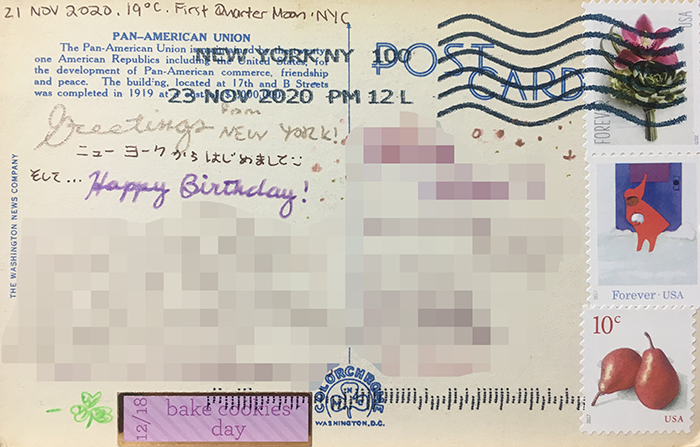 21 NOV 2020. 19°C. First Quarter Moon. NYC
PAN-AMERICAN UNION
The Pan-American Union is maintained by the twenty-
one American Republics including the United States, for
the development of Pan-American commerce, friendship
and peace. The build'ng, located at 17th and B Streets
was completed in 1919 at
POST CARD
NEW YORK NY 100
23 NOV 2020 PM 12 L
Greetings from NEW YORK!
ニューヨークからはじめまして
そして... Happy Birthday!
THE WASHINGTON NEWS COMPANY
FOREVER USA
Forever · USA
10c
USA
2017
COLORCHROME
WASHINGTON, D.C.
12/18
bake cookies
day